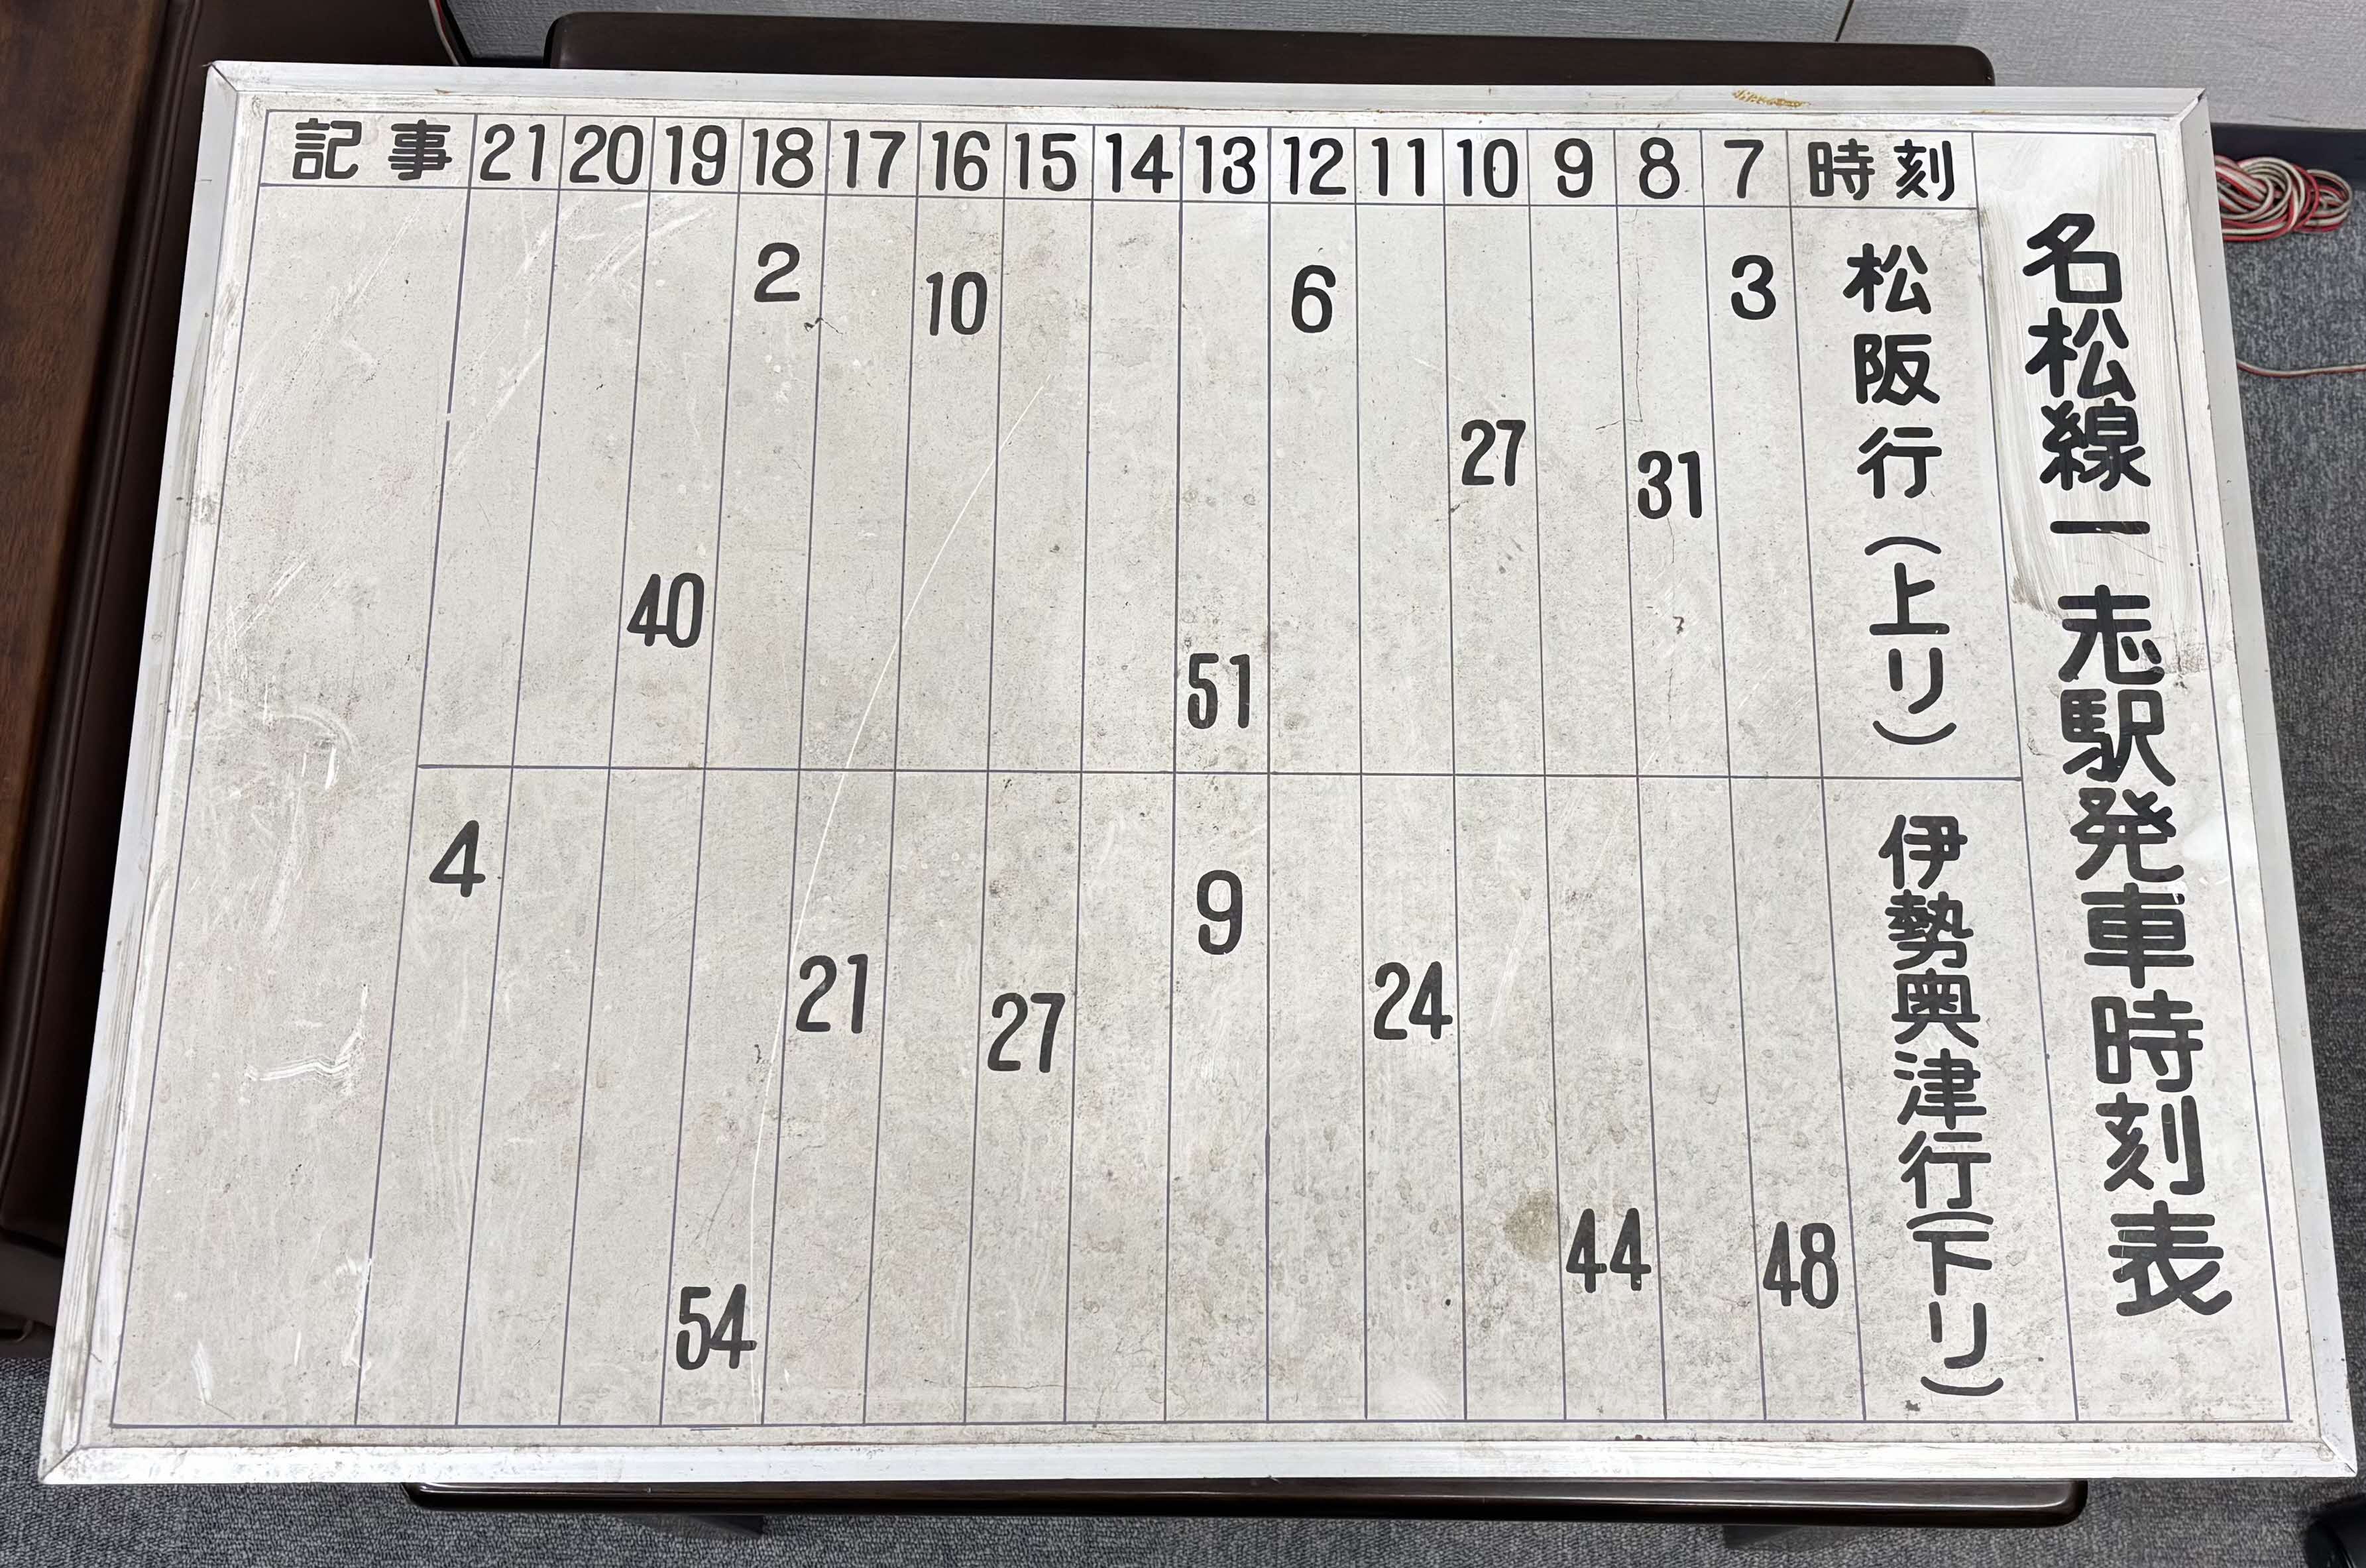 名松線一志駅発車時刻表
時刻 7 8 9 10 11 12 13 14 15 16 17 18 19 20 21 記事
松阪行(上り) 3 31 27 6 51 10 2 40
伊勢奥津行(下り) 48 44 24 9 27 21 54 4